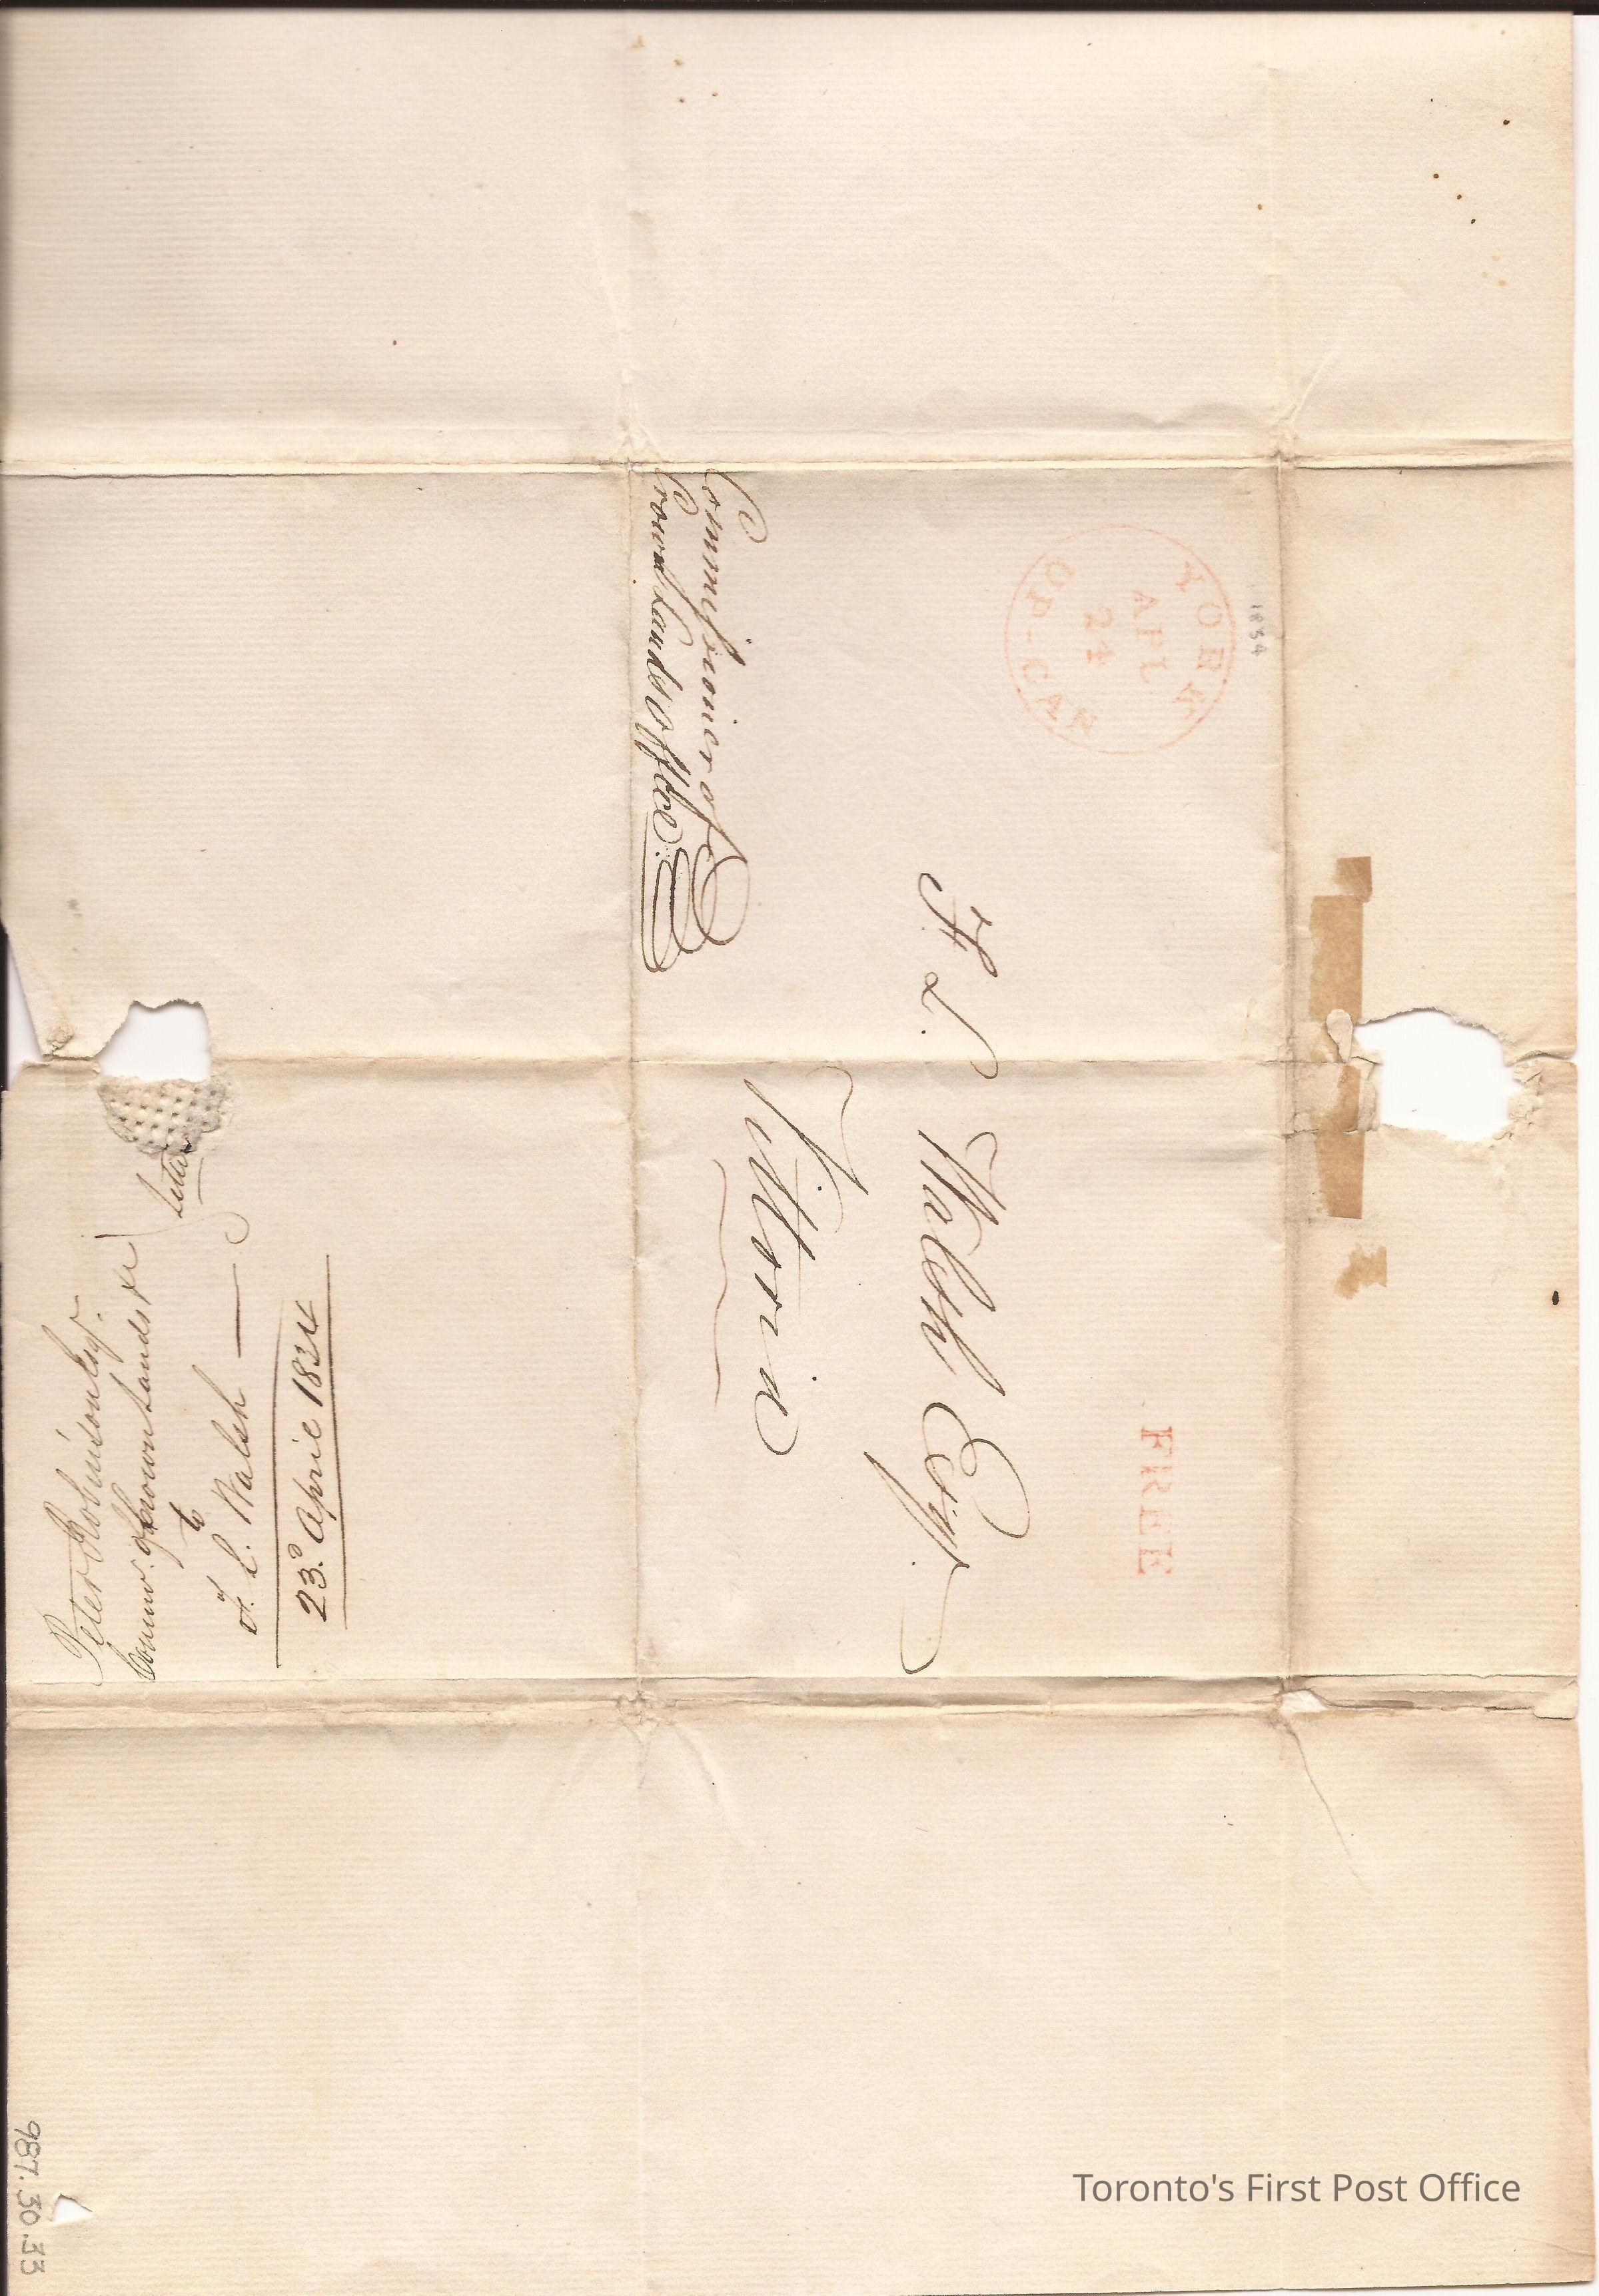 1834
YORK
APL
24
UP-CAN
FREE
F. L. Walsh Esqr.
Vittoria
Commissioner of
Crown Lands Office.
Peter Robinson Esqr.
Commr. of Crown Lands &c
Letter
to
F. L. Walsh
23d. April 1834
987.30.33
Toronto's First Post Office